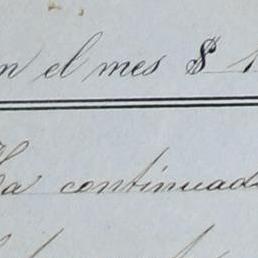 n el mes $ 1
Ha continuad